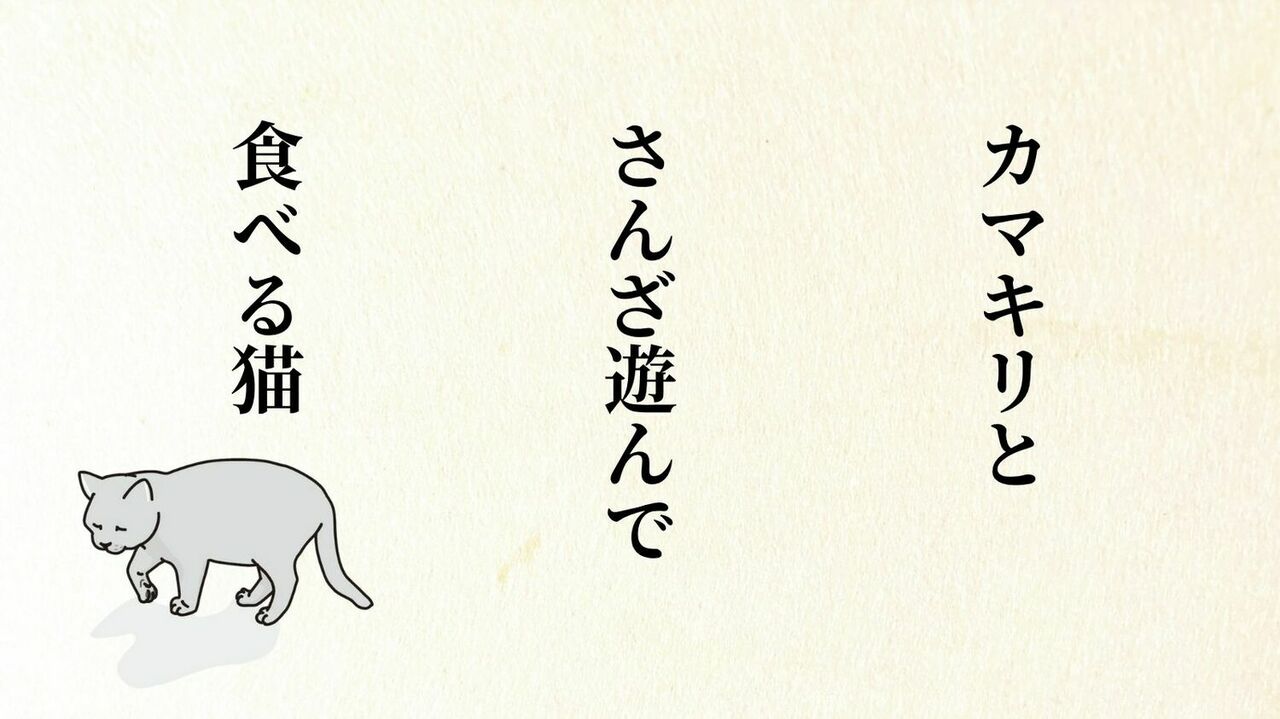 カマキリと
さんざ遊んで
食べる猫